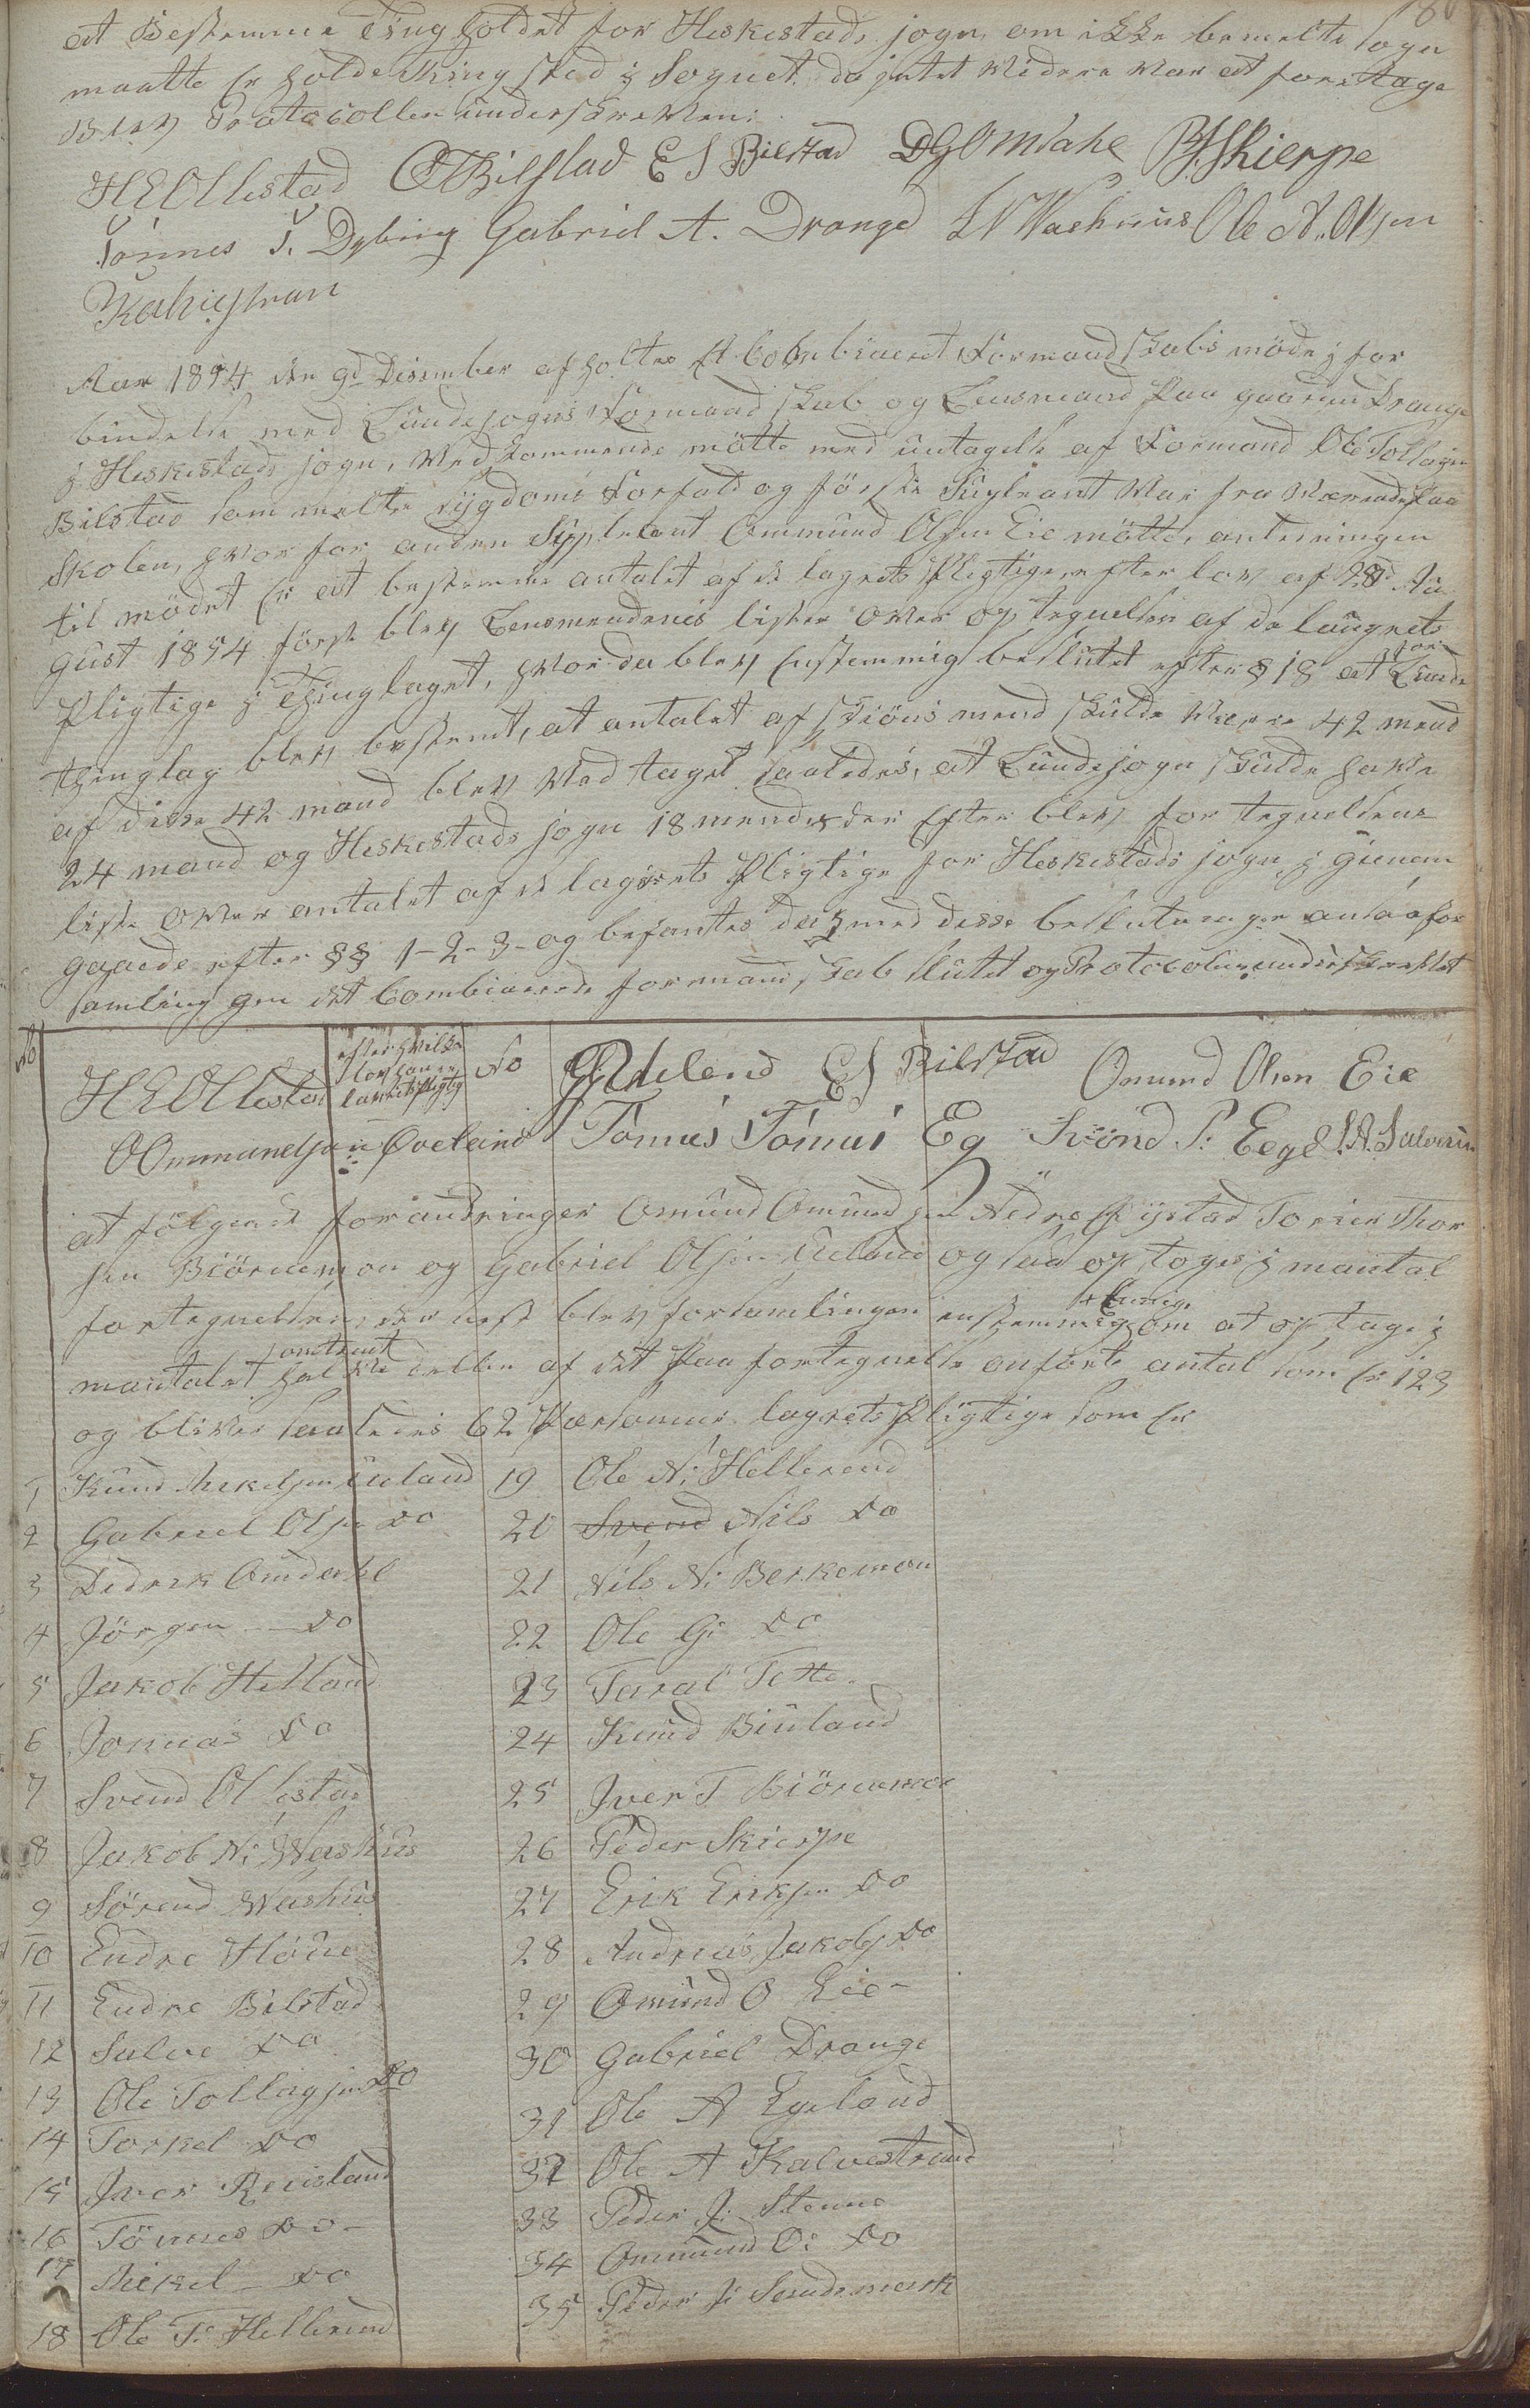 at Bestemme Ting holdet for Heskestads sogn, om ikke bemelte sogn
maatte er holde Thingsted i Sognet. da intet videre var at foretage
Blev Protocollen underskreven:
HEOllestad OTBilstad ES Bilstad DGOmdahl PJSkierpe
Tönnes T. Dybing Gabriel A. Drange LN Waehuus Ole A. Olsen
Kalvestran
Aar 1854 den 9d Desember afholtes et Combineret Formandskabs möde i for
bindelse med Lundesogns Formandskab og Lensmand paa gaarden Drange
i Heskestads sogn, Vedkommende mötte med untagelse af Formand Ole Tollagsen
Bilstad som melte sygdoms Forfald og förste Supleant var fra værende paa
Skolen, hvor for anden Suppleant Ommund Olsen Eie mötte, anledningen
til mödet er at bestemme antalet af de lagrets Pligtige, efter lov af 28d Au
gust 1854 först blev Lensmendenes lister over optegnelsen af de laugrets
Pligtige i Thinglaget, hvor da blev Enstemmig beslutet efter § 18 at for Lunde
thinglag blev bestemt, at antalet af skiöns mend skulde være 42 mend
af disse 42 mand blev vedtaget saaledes, at Lundesogn skulde have
24 mand og Heskestads sogn 18 mend der Efter blev for tegneldens
liste over antalet af de lagrets Pligtige for Heskestads sogn i gienem
gaaede efter §§ 1-2-3- og befantes dei med disse beslutninger ansaa for
samlingen det Combinerede formandskab slutet og Protocolen underskrevet
No
HEOllestad
efter hvilke
lov han er
lauretspligtig
No
GAdeland ES Bilstad Omund Olsen Eie
OOmmundsen Qveland Tönnes Tönnes Eg Svend P. Eege S.A. Salvesen
at fölgend forandringer Omund Omundsen Nedre Tysstad Torien Thor
sen Biörnemon og Gabriel Olsen Ueland og saa optoges i mantal
fortegnelsen, der nest blev forsamlingen enstemmig Enige om at optage i
mantalet omtrent halvdelen af det paa fortegnelse onförte antal som er 123
og bliver saaledes 62 Personer lagrets Pligtige som er
1 Knud Mikelsen Ueland
2 Gabriel Olsen Do
3 Didrik Omdahl
4 Jörgen Do
5 Jakob Helland
6 Jonnas Do
7 Svend Ollestad
8 Jakob N: Washus
9 Sörend Washus
10 Endre Houe
11 Endre Bilstad
12 Salve Do
13 Ole Tollagsen Do
14 Torkel Do
15 Iver Reisland
16 Tönnes Do
17 Mikel Do
18 Ole T: Hellerend
19 Ole N: Hellerend
20 Svend Nils Do
21 Nils N: Berkemoen
22 Ole G: Do
23 Taral Tette
24 Knud Biuland
25 Iver T Biörnemoe
26 Peder Skierpe
27 Erik Eriksen Do
28 Andreas Jakobs Do
29 Omund O Eie
30 Gabriel Drange
31 Ole A Egeland
32 Ole A Kalvestrand
33 Peder J: Stenne
34 Ommund O: Do
35 Peder J: Sandsmark